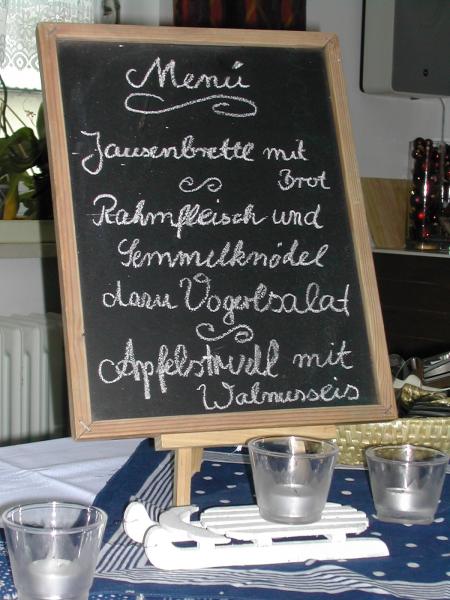 Menü
Jausenbrettl mit
Brot
Rahmfleisch und
Semmelknödel
dazu Vogerlsalat
Apfelstrudl mit
Walnusseis